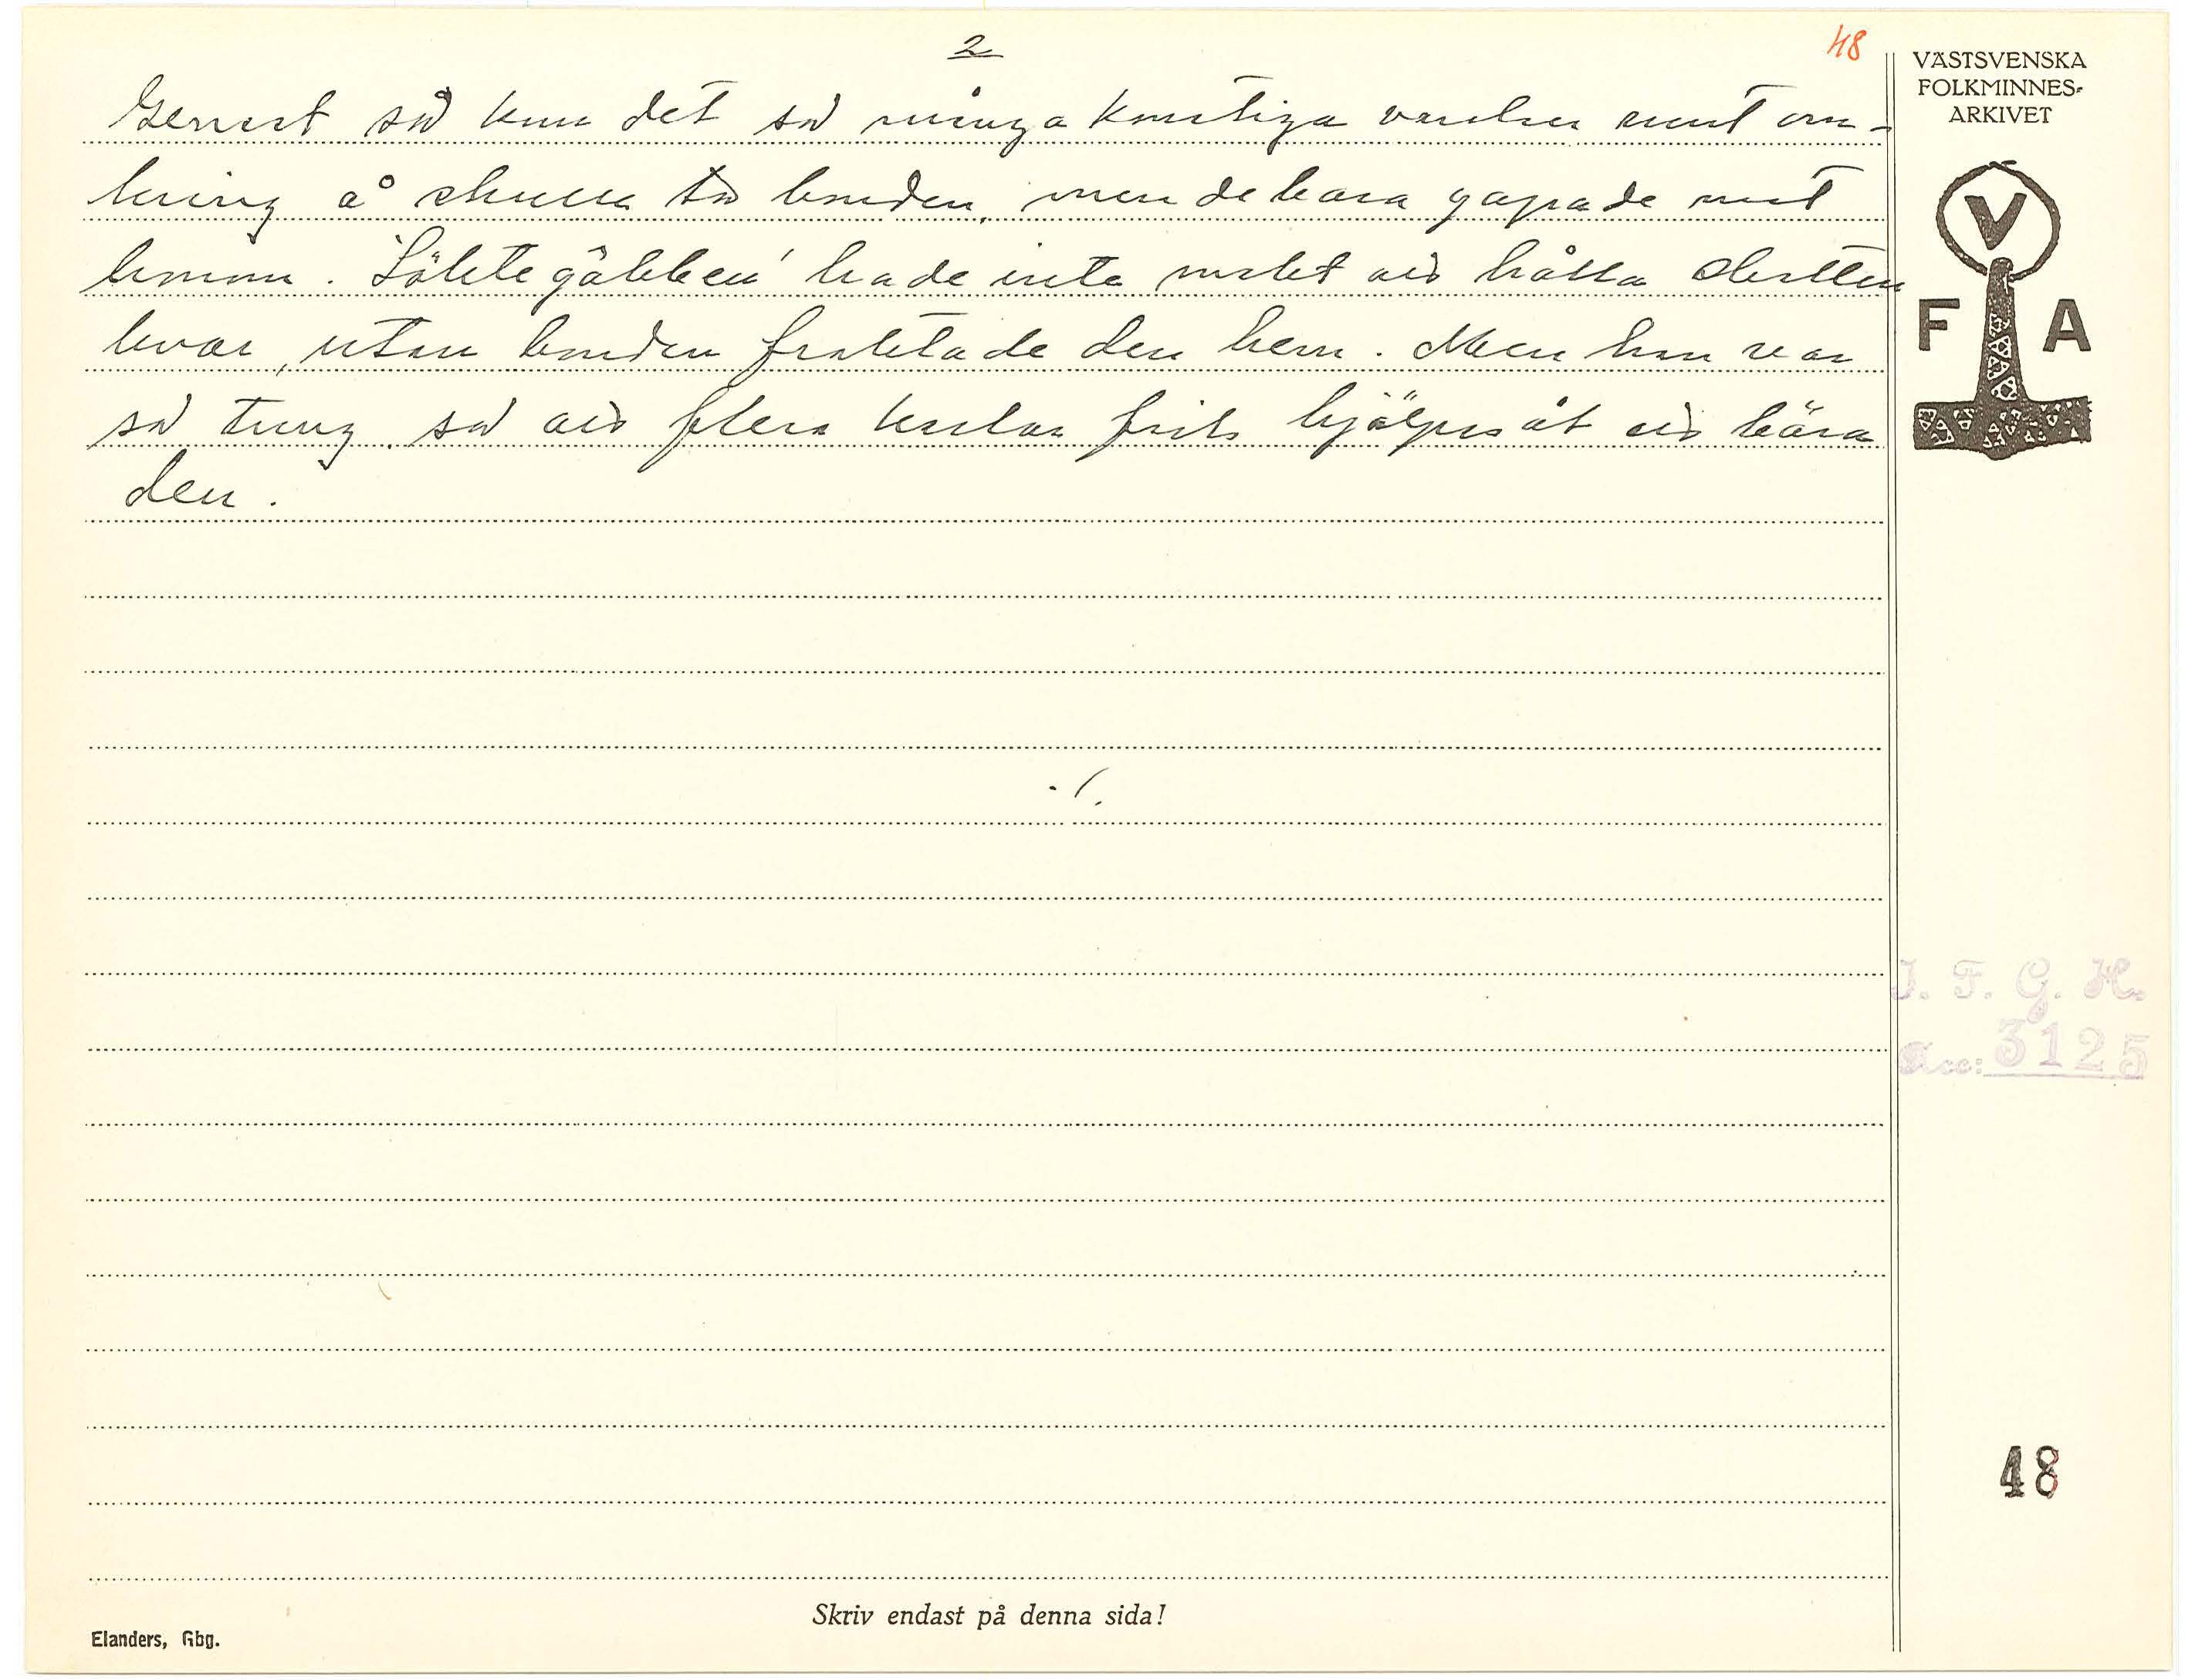 2
48
Genast så kom det så många konstiga varelser runt om-
kring å skulle ta bonden, men de bara gapade mot
honom. "Löktegôbben" hade inte makt att hålla skatten
kvar, utan bonden fraktade den hem. Men han var
så tung så att flera karlar fick hjälpas åt att bära
den.
./.
VÄSTSVENSKA
FOLKMINNES-
ARKIVET
V
F A
I. F. G. H.
Acc: 3125
48
Skriv endast på denna sida!
Elanders, Gbg.